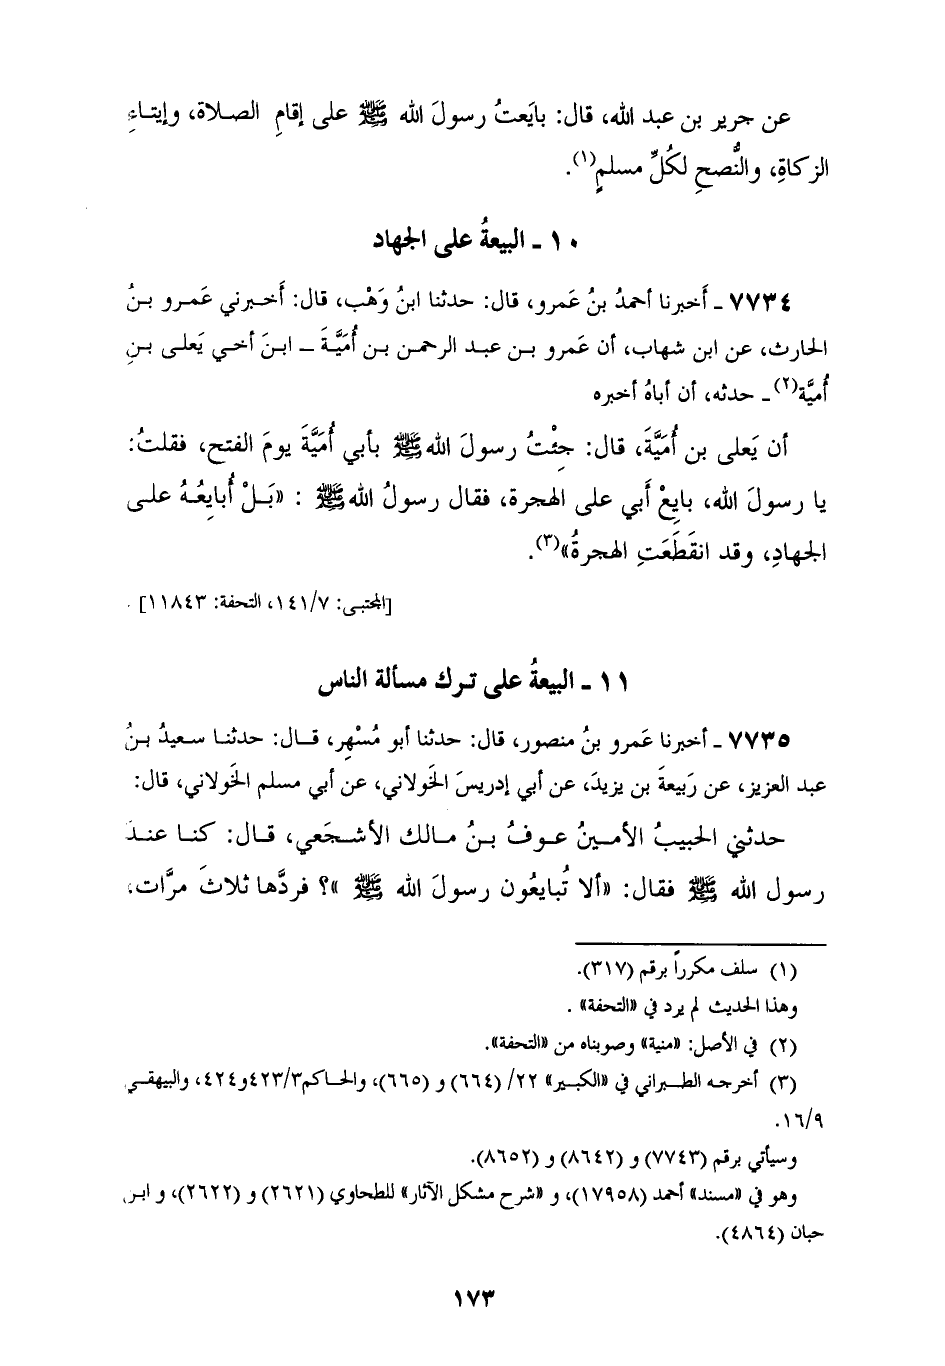 عن جرير بن عبد الله، قال: بايَعتُ رسولَ الله ﷺ على إقامِ الصلاة، وإيتاءِ
الزكاةِ، والنُّصحِ لكُلِّ مسلمٍ(١).
١٠ ـ البيعةُ على الجهاد
٧٧٣٤ ـ أَخبرنا أحمدُ بنُ عَمرو، قال: حدثنا ابنُ وَهْب، قال: أَخبرني عَمرو بنُ
الحارث، عن ابن شهاب، أن عَمرو بن عبد الرحمن بن أُمَيَّةَ ـ ابنَ أخي يَعلى بنِ
أُميَّة(٢) ـ حدثه، أن أباهُ أخبره
أن يَعلى بن أُمَيَّةَ، قال: جِئْتُ رسولَ الله ﷺ بأبي أُمَيَّةَ يومَ الفتح، فقلتُ:
يا رسولَ الله، بايِعْ أَبي على الهجرة، فقال رسولُ الله ﷺ : «بَلْ أُبايِعُهُ على
الجهادِ، وقد انقَطَعَتِ الهجرةُ»(٣).
[المجتبى: ١٤١/٧، التحفة: ١١٨٤٣] .
١١ ـ البيعةُ على ترك مسألة الناس
٧٧٣٥ ـ أخبرنا عَمرو بنُ منصور، قال: حدثنا أبو مُسْهِر، قال: حدثنا سعيدُ بنُ
عبد العزيز، عن رَبيعةَ بن يزيدَ، عن أبي إدريسَ الخَولاني، عن أبي مسلم الخَولاني، قال:
حدثني الحبيبُ الأمينُ عوفُ بنُ مالك الأشجَعي، قال: كنا عندَ
رسول الله ﷺ فقال: «ألا تُبايعُون رسولَ الله ﷺ »؟ فردَّها ثلاثَ مرَّات،
(١) سلف مكرراً برقم (٣١٧).
وهذا الحديث لم يرد في «التحفة» .
(٢) في الأصل: «منية» وصوبناه من «التحفة».
(٣) أخرجه الطبراني في «الكبير» ٢٢/ (٦٦٤) و (٦٦٥)، والحاكم ٤٢٣/٣و٤٢٤، والبيهقي
١٦/٩.
وسيأتي برقم (٧٧٤٣) و (٨٦٤٢) و (٨٦٥٢).
وهو في «مسند» أحمد (١٧٩٥٨)، و «شرح مشكل الآثار» للطحاوي (٢٦٢١) و (٢٦٢٢)، و ابن
حبان (٤٨٦٤).
١٧٣